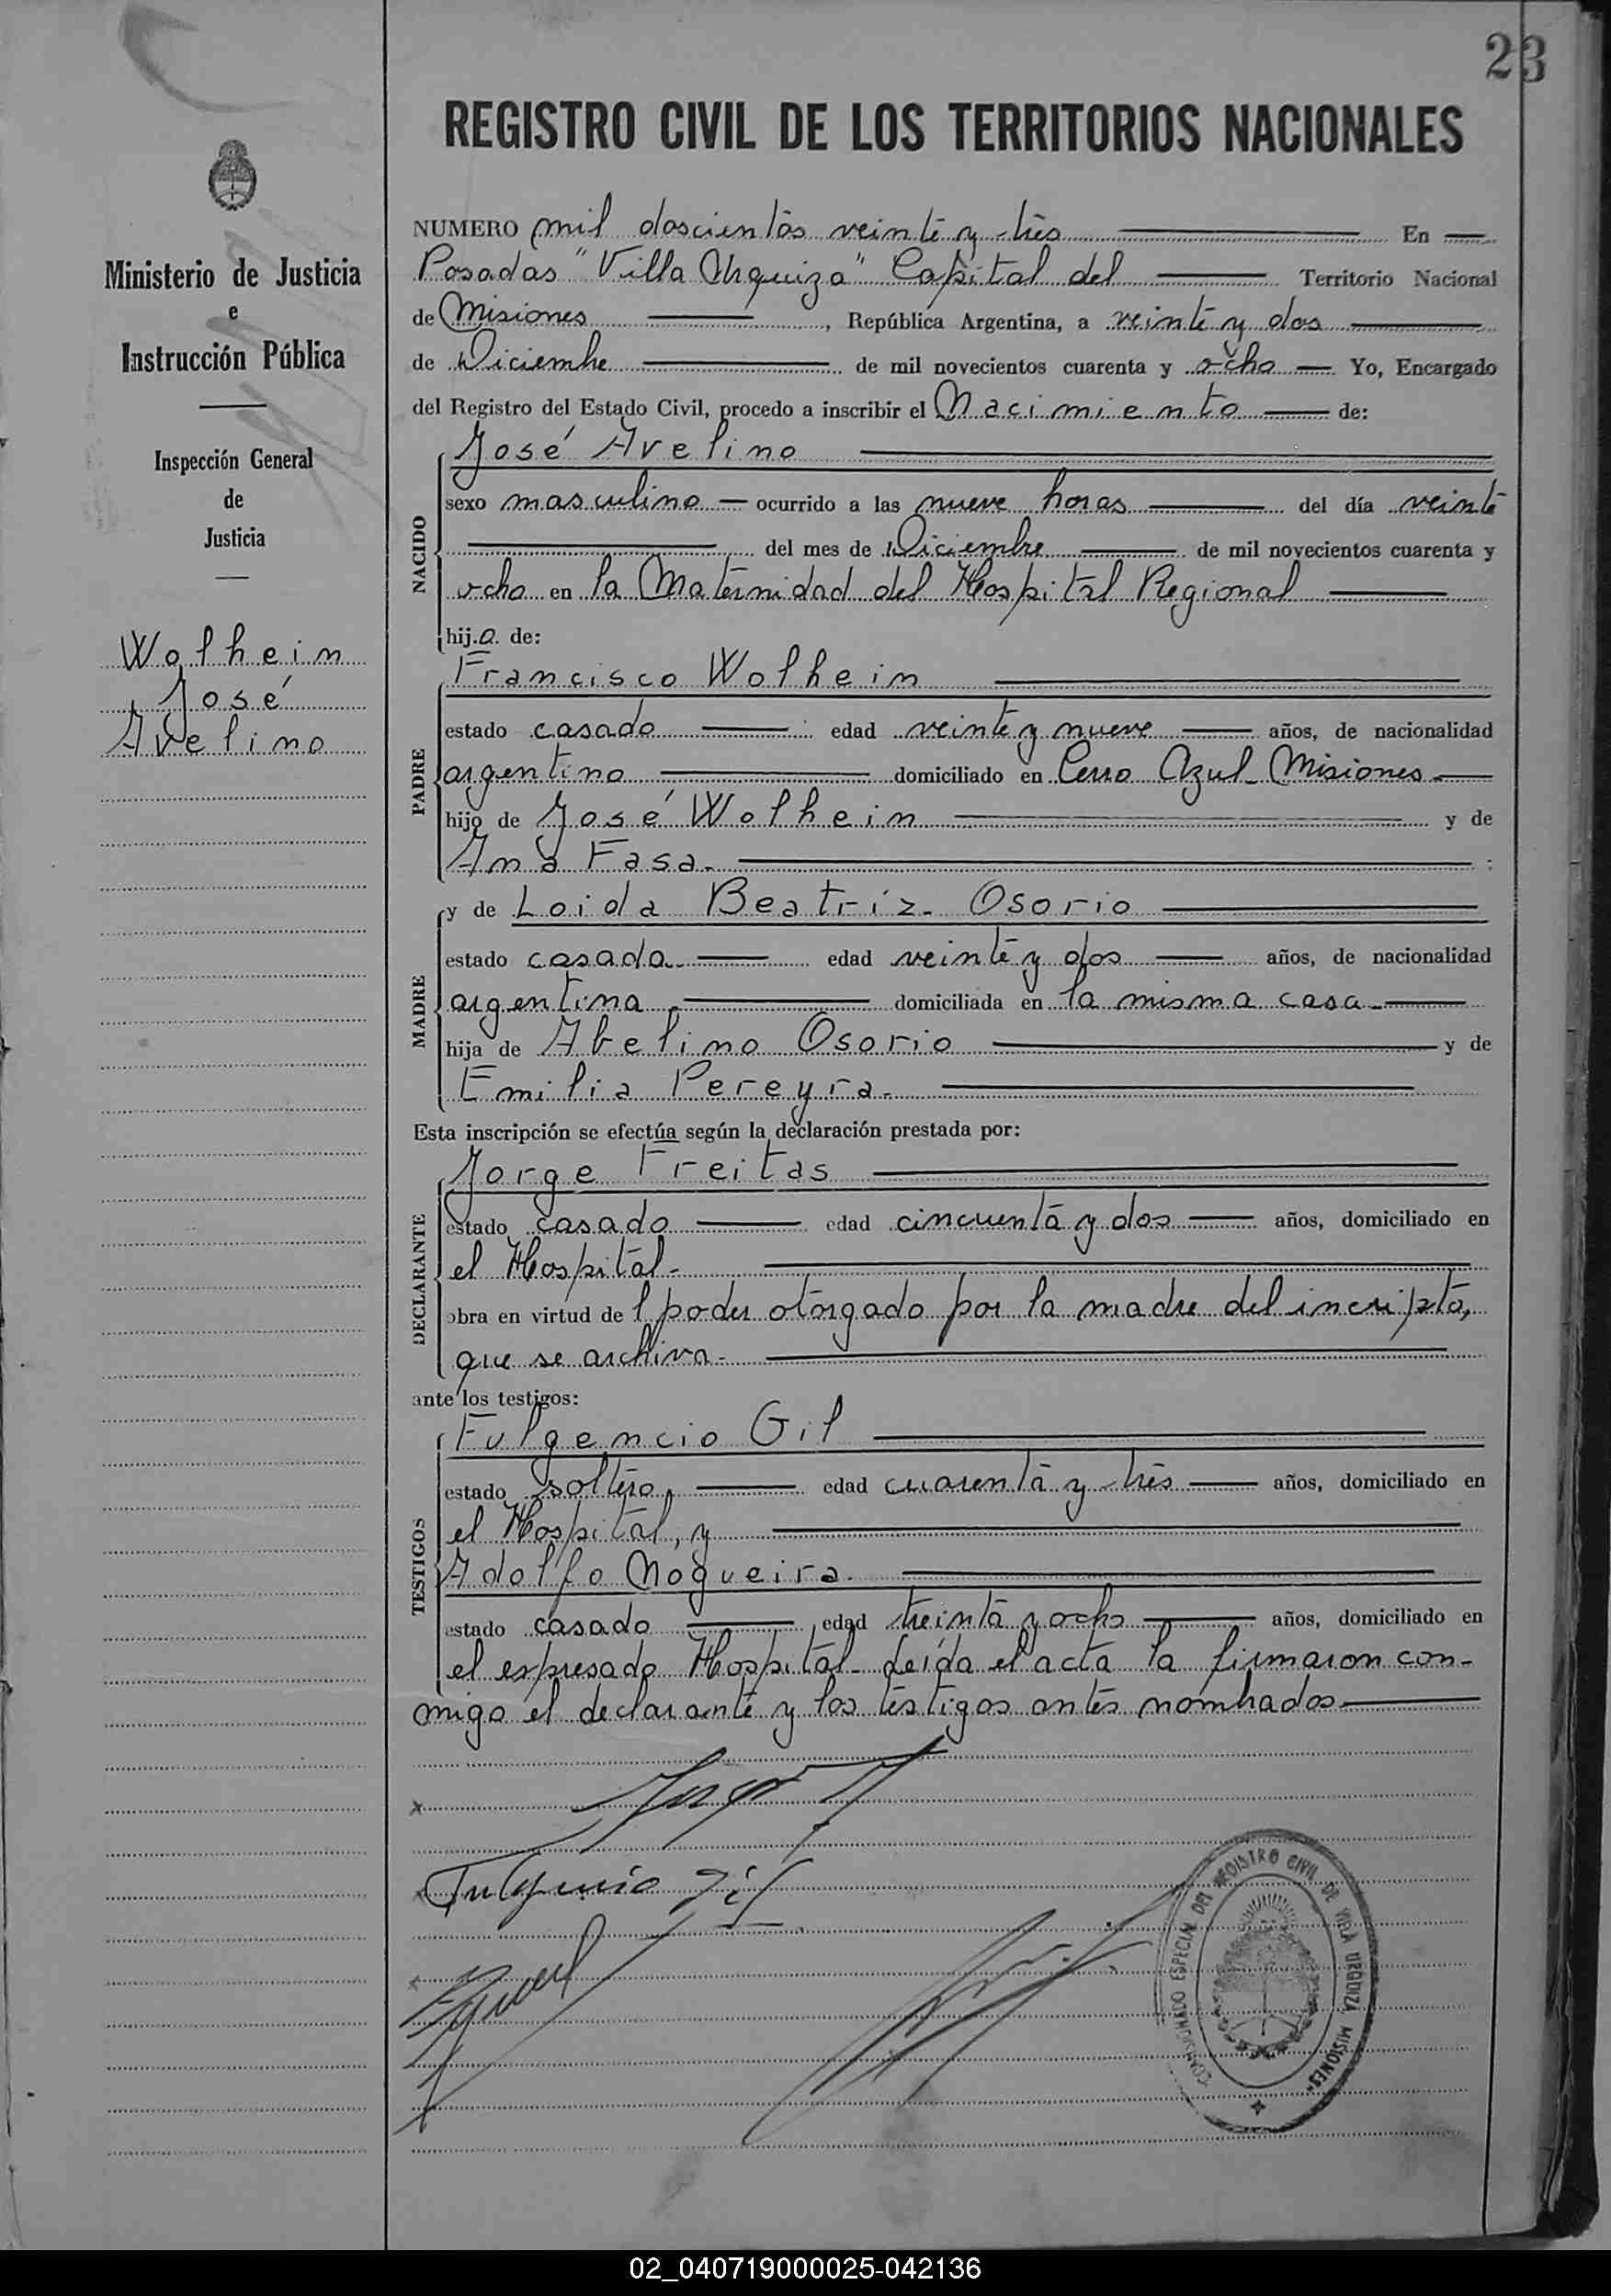 23
REGISTRO CIVIL DE LOS TERRITORIOS NACIONALES
Ministerio de Justicia
e
Instrucción Pública
Inspección General
de
Justicia
Wolhein
José
Avelino
NUMERO mil doscientos veinte y tres En
Posadas "Villa Urquiza" Capital del Territorio Nacional
de Misiones, República Argentina, a veinte y dos
de Diciembre de mil novecientos cuarenta y ocho Yo, Encargado
del Registro del Estado Civil, procedo a inscribir el Nacimiento de:
NACIDO
José Avelino
sexo masculino ocurrido a las nueve horas del día veinte
del mes de Diciembre de mil novecientos cuarenta y
ocho en la Maternidad del Hospital Regional
hijo de:
PADRE
Francisco Wolhein
estado casado edad veinte y nueve años, de nacionalidad
argentino domiciliado en Cerro Azul - Misiones
hijo de José Wolhein y de
Ana Fasa.
MADRE
y de Loida Beatriz Osorio
estado casada edad veinte y dos años, de nacionalidad
argentina domiciliada en la misma casa
hija de Abelino Osorio y de
Emilia Pereyra.
Esta inscripción se efectúa según la declaración prestada por:
DECLARANTE
Jorge Freitas
estado casado edad cincuenta y dos años, domiciliado en
el Hospital.
obra en virtud del poder otorgado por la madre del incripto,
que se archiva.
ante los testigos:
TESTIGOS
Fulgencio Gil
estado soltero, edad cuarenta y tres años, domiciliado en
el Hospital, y
Adolfo Nogueira.
estado casado edad treinta y ocho años, domiciliado en
el expresado Hospital. Leída el acta la firmaron con-
migo el declarante y los testigos antes nombrados
Fulgencio Gil
COMISIONADO ESPECIAL DEL REGISTRO CIVIL DE VILLA URQUIZA MISIONES
02_040719000025-042136